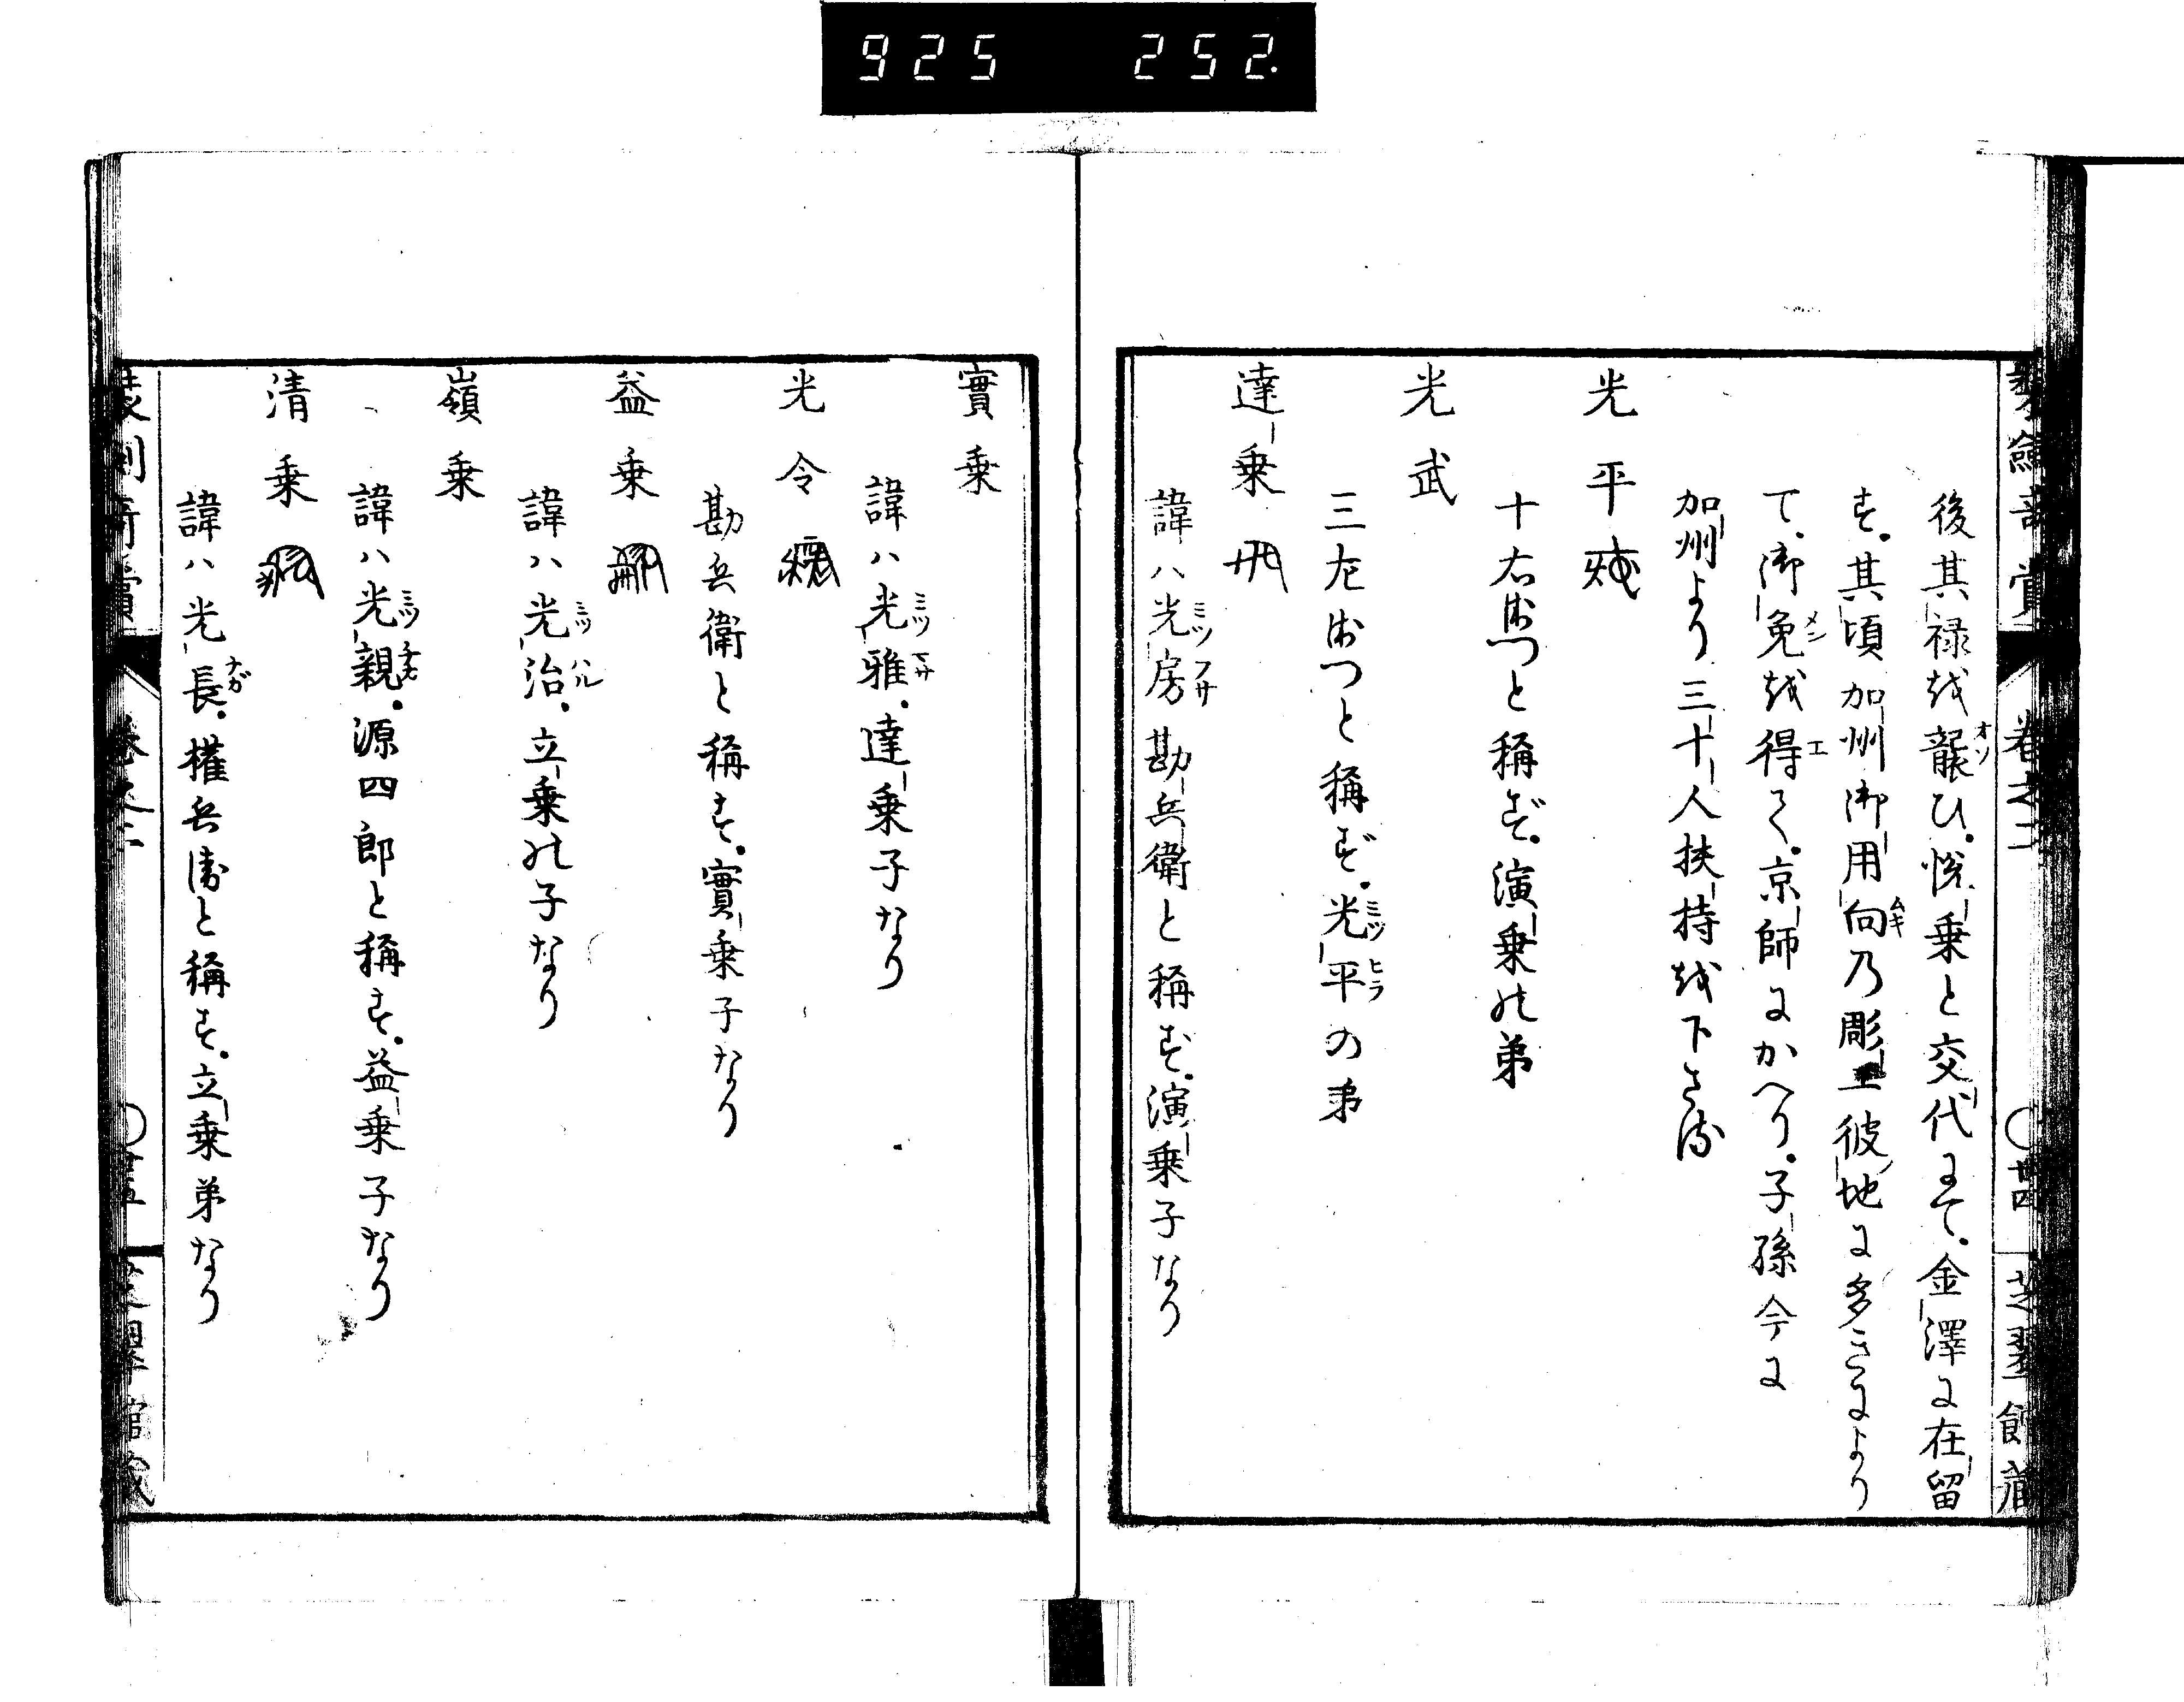 925 252.
後其禄越襲ひ。悦乗と交代まて。金澤に在留
す。其頃加州御用向乃彫工彼地に多きにより
て、御免越得て。京師にかへり。子孫今に
加州より三十人扶持越下さる
光平
十右衛門と称ず。演乗の弟
光武
三左衛門と稱ず。光平の弟
達乗
諱ハ光房勘兵衛と稱ず。演乗子なり
實乗
諱ハ光雅。達乗子なり
光令
勘兵衛と稱す。實乗子なり
益乗
諱ハ光治。立乗の子なり
嶺乗
諱ハ光親。源四郎と稱す。益乗子なり
清乗
諱ハ光長。權兵衛と稱す。立乗弟なり